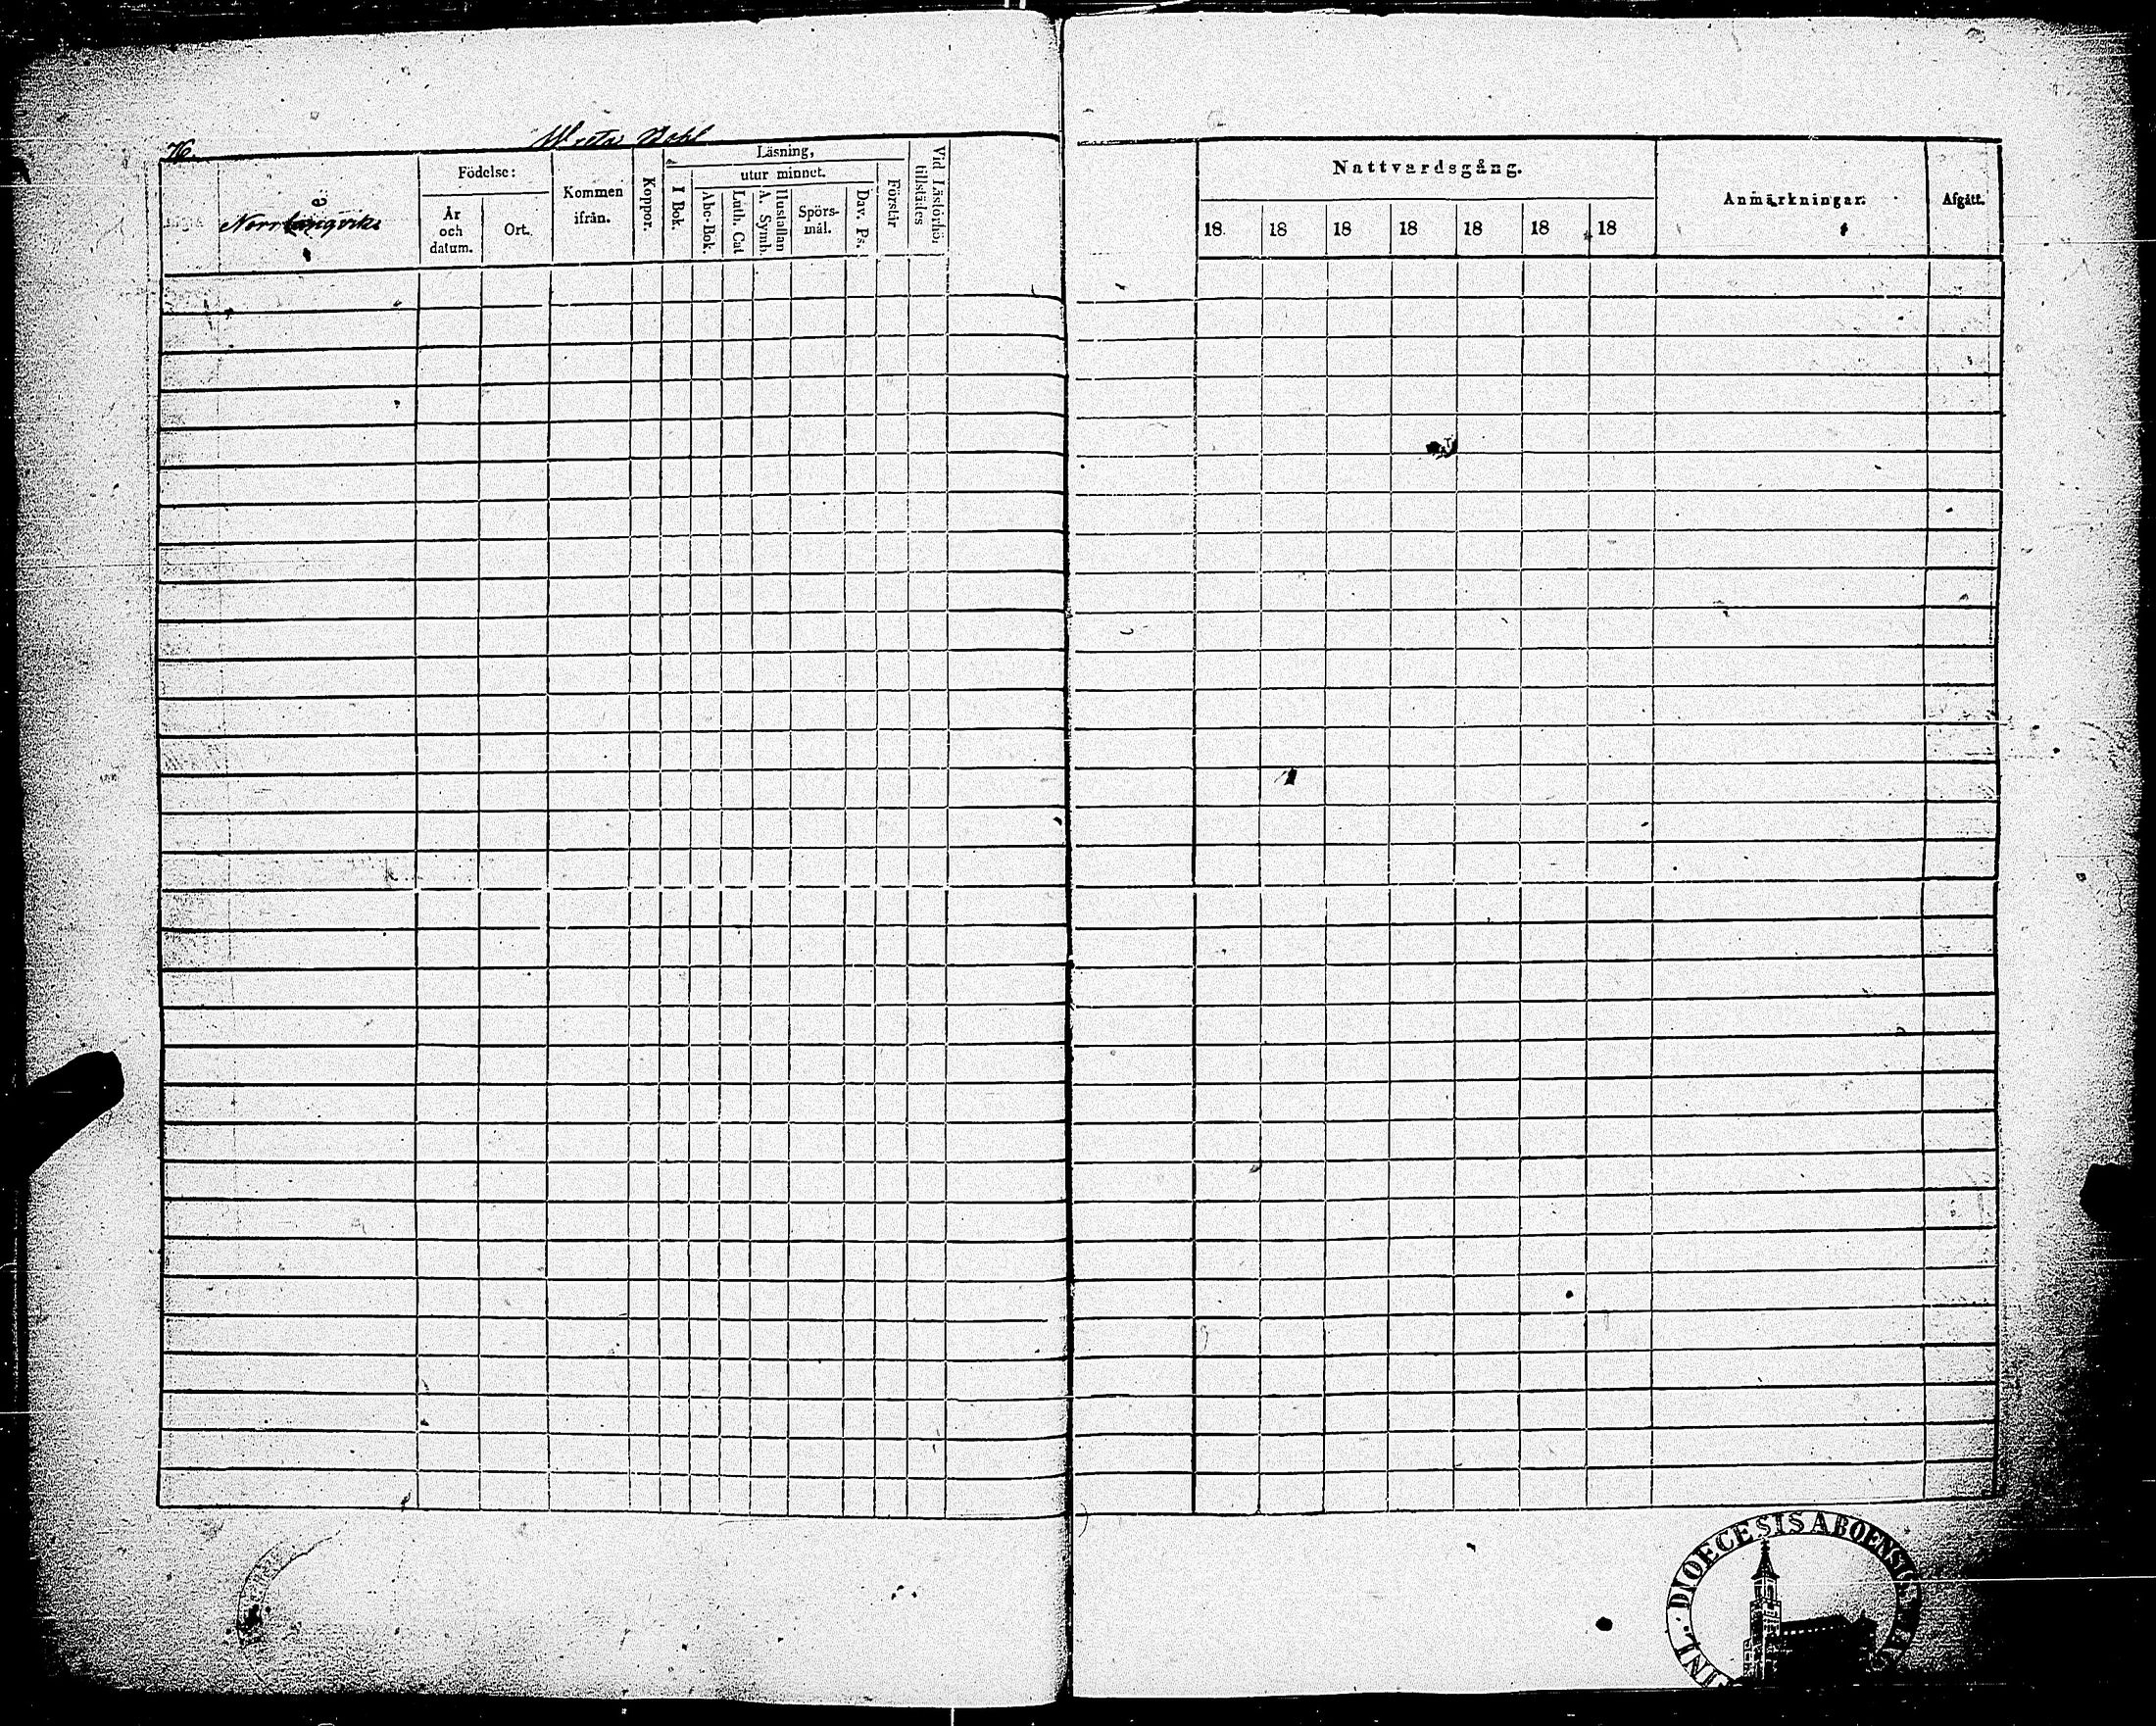 76.
Wreta Bohl
Norrlångviks
Födelse:
År
och
datum.
Ort.
Kommen
ifrån.
Koppor.
Läsning,
I Bok.
utur minnet.
Abc-Bok.
Luth. Cat
A. Symb.
Hustaflan
Spörs-
mål.
Dav. Ps.
Förstår
Vid Läsförhör
tillstädes
Nattvardsgång.
18 18 18 18 18 18 18
Anmärkningar.
Afgått.
DIOECESIS ABOENSIS